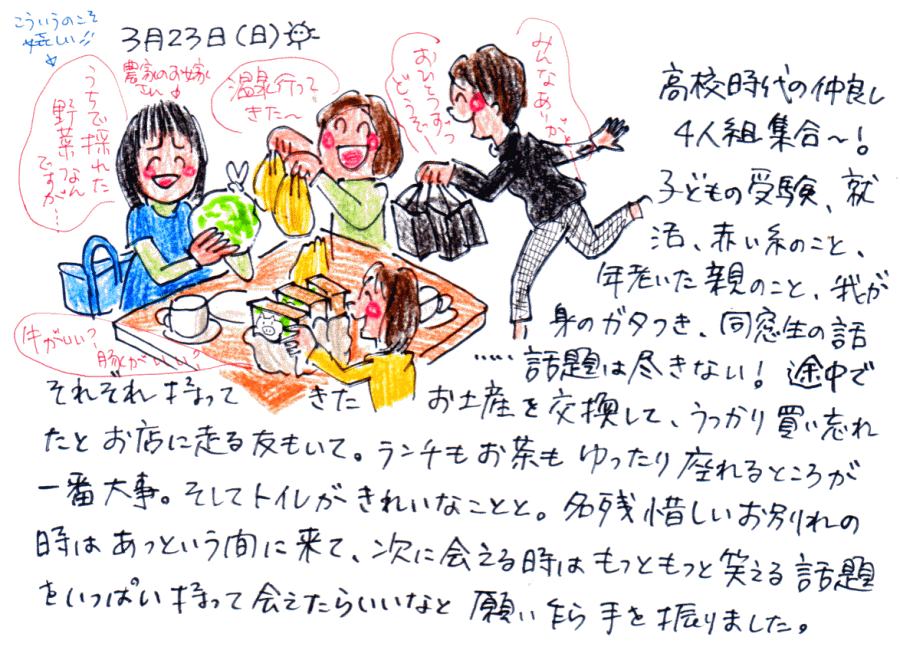 こういうのこそ
嬉しい!!
3月23日(日)
農家のお嫁
さん
うちで採れた
野菜なん
ですが…
温泉行って
きた〜
おひとつずつ
どうぞ
みんなありがと
牛がいい?
豚がいい?
高校時代の仲良し
4人組集合〜!
子どもの受験、就
活、赤い糸のこと、
年老いた親のこと、我が
身のガタつき、同窓生の話
……話題は尽きない! 途中で
それぞれ持ってきたお土産を交換して、うっかり買い忘れ
たとお店に走る友もいて。ランチもお茶もゆったり座れるところが
一番大事。そしてトイレがきれいなことと。名残惜しいお別れの
時はあっという間に来て、次に会える時はもっともっと笑える話題
をいっぱい持って会えたらいいなと願い乍ら手を振りました。